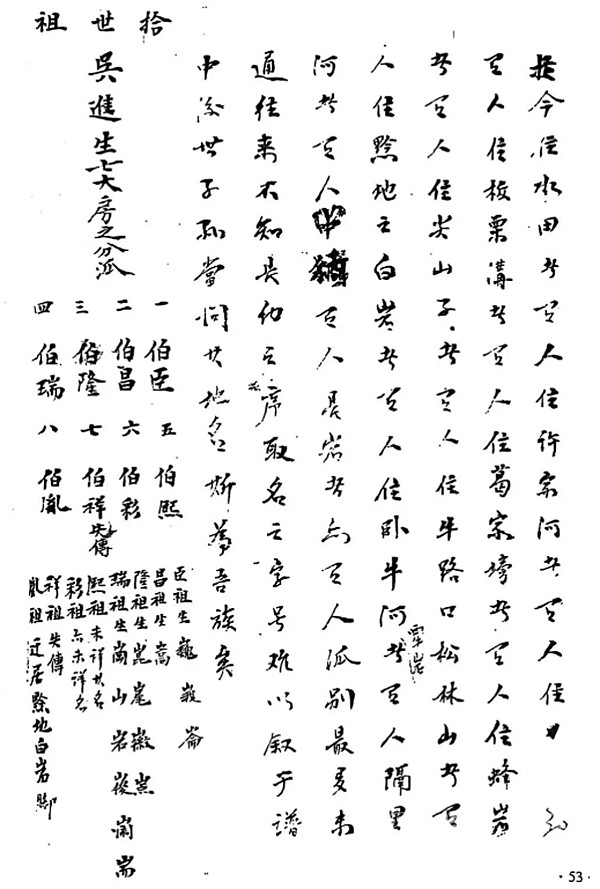 今住水田者有人住許家河者有人住
有人住板栗溝者有人住葛家塆者有人住蜂岩
者有人住尖山子者有人住牛路口松林山者有
人住黔地之白岩者有人住卧牛河者有人隔里
河者有人有人岩者亦有人派別最多未
通往来不知長幼之序取名之字号难以叙于譜
中後世子孫當問其地名斯為吾族矣
拾世祖
吳進生七大房之分派
一 伯臣 五 伯熙
二 伯昌 六 伯彩
三 伯隆 七 伯祥失傳
四 伯瑞 八 伯胤
臣祖生巍嶔崙
昌祖生嵩
隆祖生崑嵬嶶嵐
瑞祖生崗山岩峻崗耑
熙祖未詳其名
彩祖亦未詳名
祥祖失傳
胤祖迁居黔地白岩脚
·53·